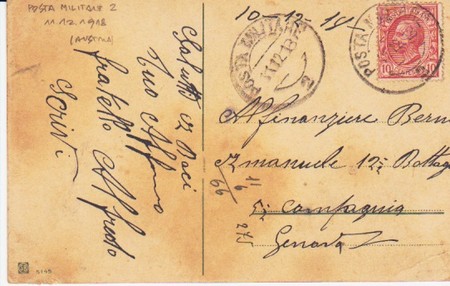 POSTA MILITARE 2
11.12.1918
(AUSTRIA)
10-12-18-
POSTA MILITARE
11.12.18
2
POSTA
10
10
Saluti e Baci
tuo Affmo
fratello Alfredo
Scrivi
Al finanziere Berni
Emanuele 12º Battag
5ª compagnia
Genova